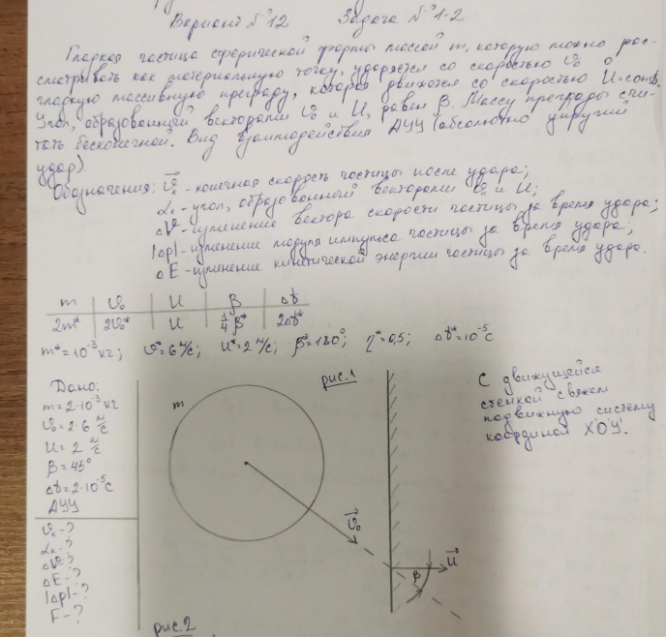 Вариант №12 Задача №1-2
Гладкая частица сферической формы массой m, которую можно рас-
сматривать как материальную точку, ударяется со скоростью v⃗₀ о
гладкую массивную преграду, которая движется со скоростью U⃗=const.
Угол, образованный векторами v⃗₀ и U⃗, равен β. Массу преграды счи-
тать бесконечной. Вид взаимодействия АУУ (абсолютно упругий
удар)
Обозначения: v⃗ₖ - конечная скорость частицы после удара;
αₖ - угол, образованный векторами и U;
ΔV - изменение вектора скорости частицы за время удара;
|Δp| - изменение модуля импульса частицы за время удара;
ΔE - изменение кинетической энергии частицы за время удара.
m | v₀ | U | β | Δt
2m* | 2v₀* | U | 1/4 β* | 2Δt*
m*=10⁻³кг; v*=6 м/с; U*=2 м/с; β*=180°; η*=0,5; Δt*=10⁻⁵с
Дано:
m=2·10⁻³кг
v₀=2·6 м/с
U=2 м/с
β=45°
Δt=2·10⁻⁵с
АУУ
vₖ-?
αₖ-?
ΔV-?
ΔE-?
|Δp|-?
F-?
рис.1
m
v⃗₀
U⃗
β
С движущейся
стенкой свяжем
подвижную систему
координат X'O'Y'.
рис.2